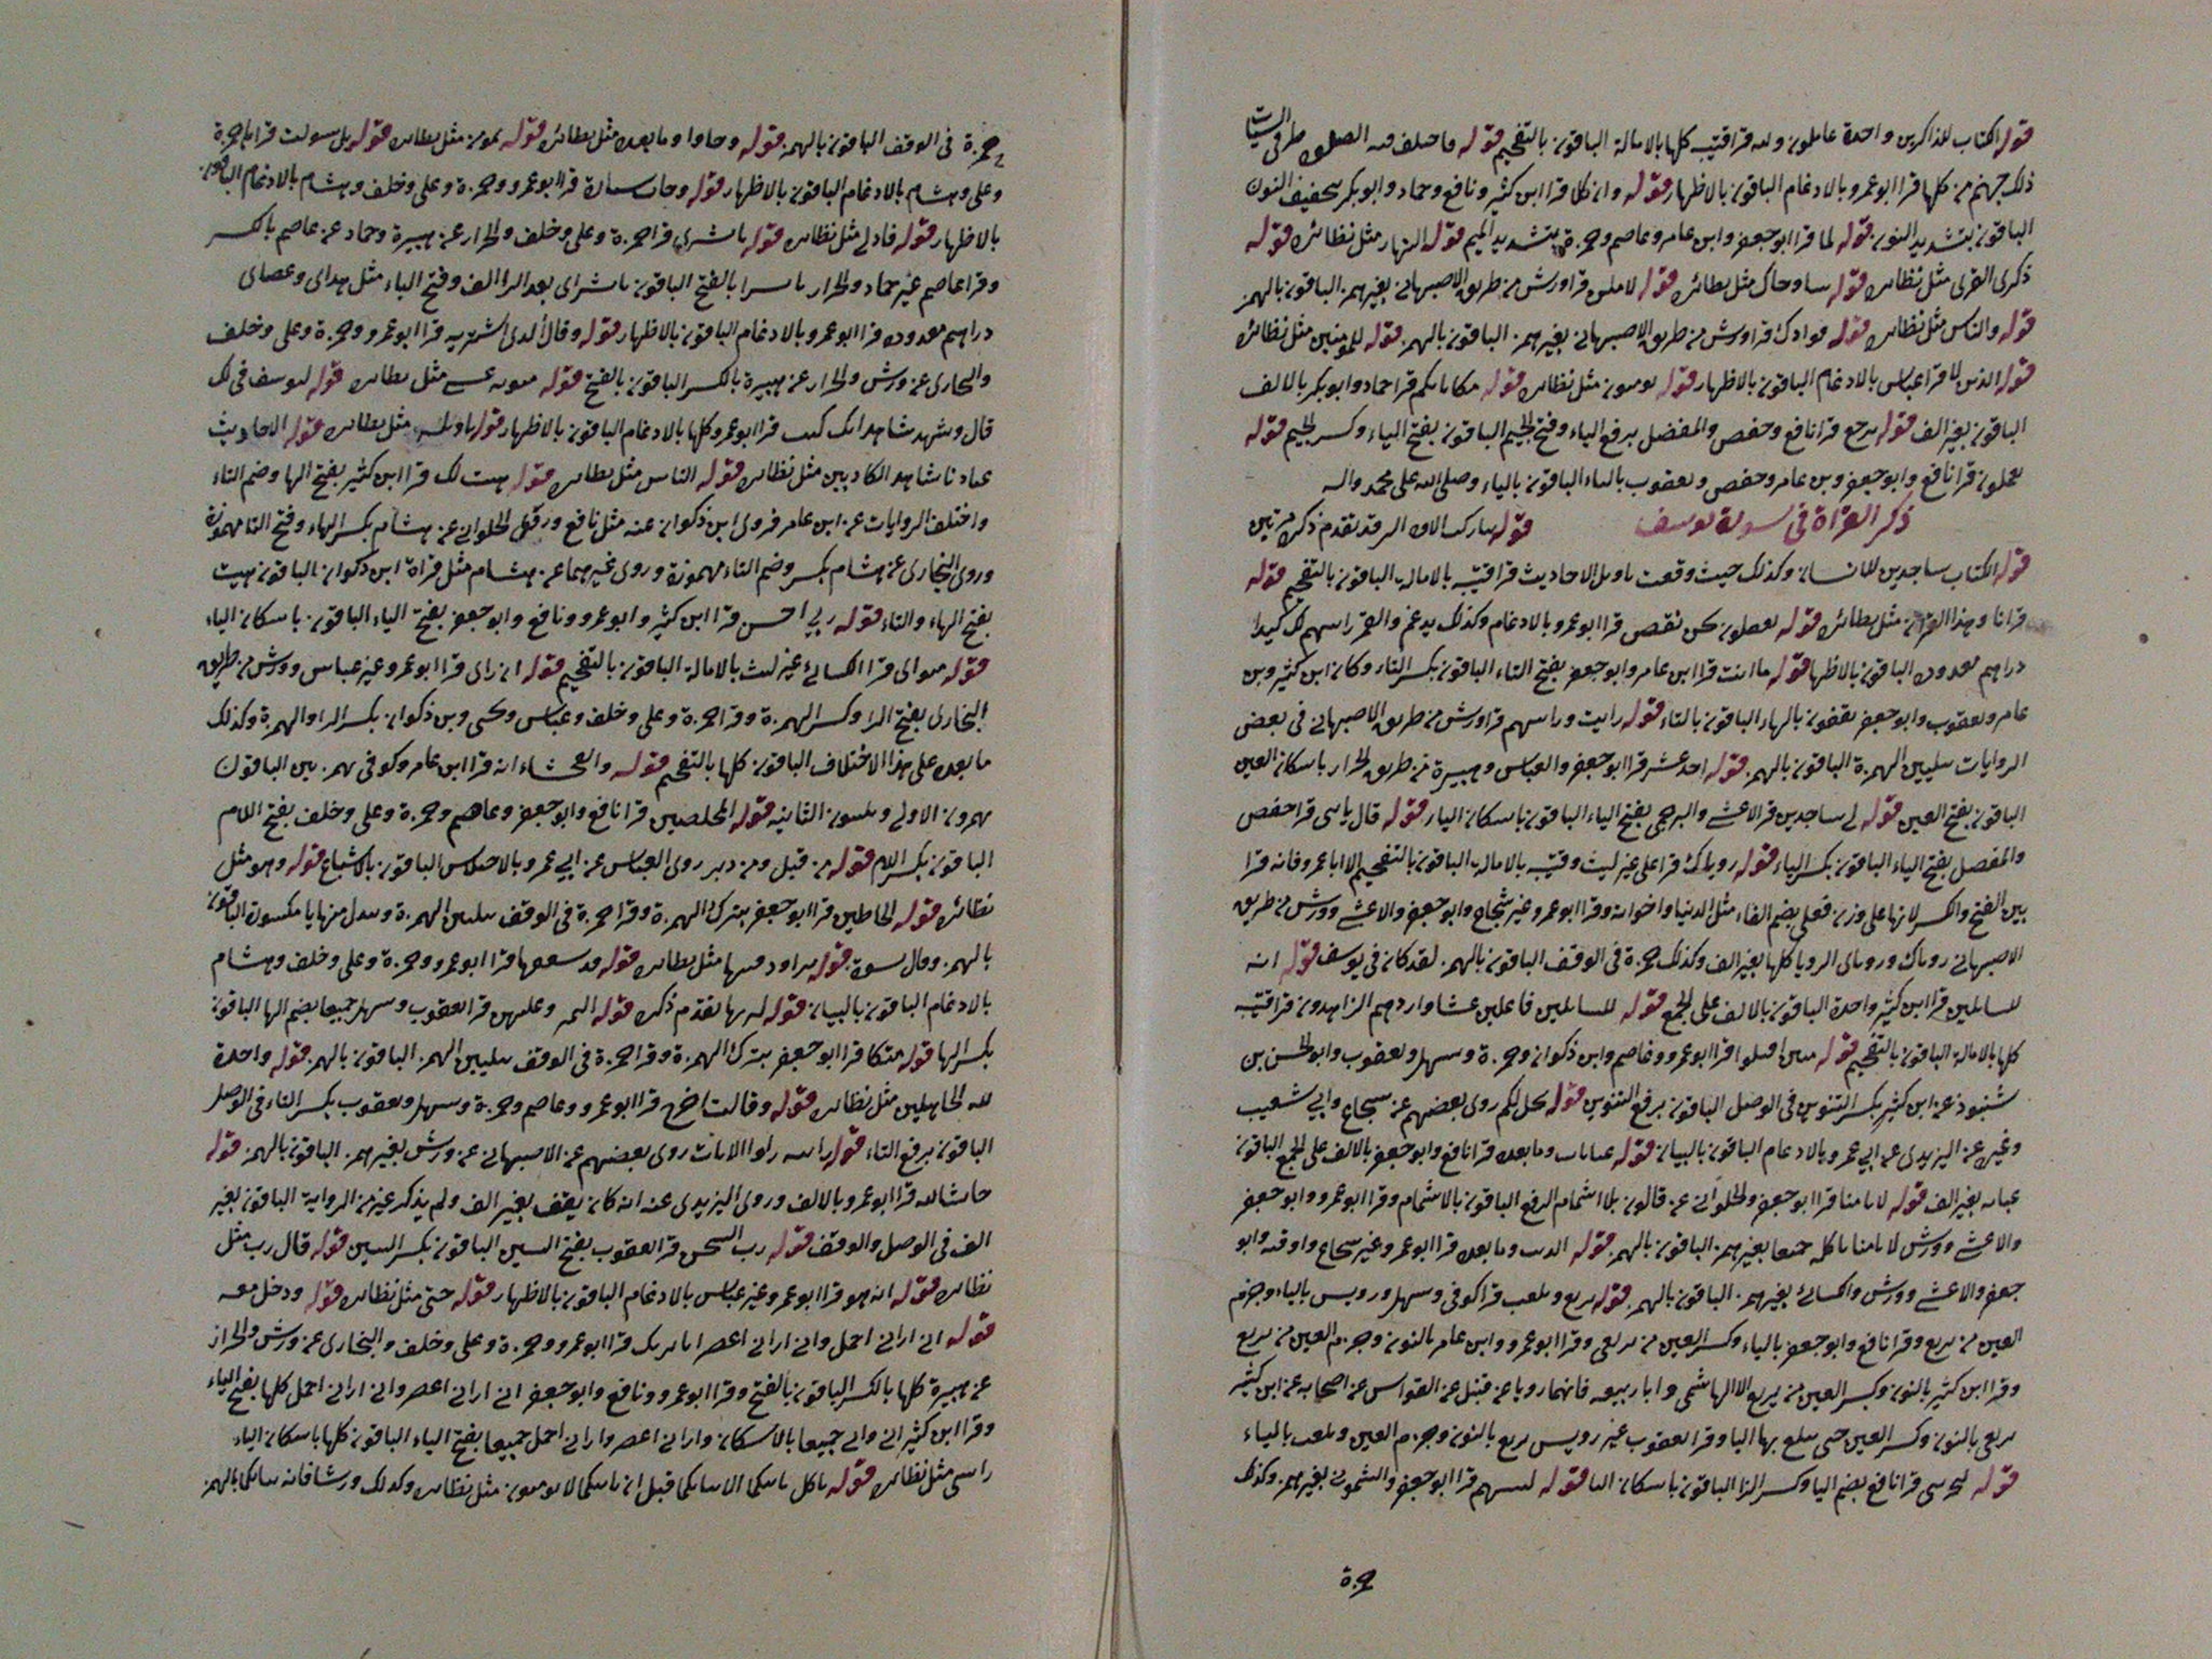 قوله الكتاب للذاكرين واحدة عاملون وله قرا قتيبه كلها بالامالة الباقون بالتفخيم قوله فاختلف فيه الصلوة طرفي السيئات
ذلك جهنم من كلها قرا ابو عمرو بالادغام الباقون بالاظهار قوله وان كلا قرا ابن كثير ونافع وحماد وابو بكر بتخفيف النون
الباقون بتشديد النون قوله لما قرا ابو جعفر وابن عامر وعاصم وحمزة بتشديد الميم قوله النهار مثل نظائره قوله
ذكرى القرى مثل نظائره قوله سا وجاك مثل نظائره قوله لاملان قرا ورش من طريق الاصبهاني بغير همز الباقون بالهمز
قوله والناس مثل نظائره قوله فوادك قرا ورش من طريق الاصبهاني بغير همز الباقون بالهمز قوله للمومنين مثل نظائره
قوله الذين لا قرا عباس بالادغام الباقون بالاظهار قوله يومنون مثل نظائره قوله مكاناتكم قرا حماد وابو بكر بالالف
الباقون بغير الف قوله يرجع قرا نافع وحفص والمفضل برفع الياء وفتح الجيم الباقون بفتح الياء وكسر الجيم قوله
يعملون قرا نافع وابو جعفر وبن عامر وحفص ويعقوب بالتاء الباقون بالياء وصلى الله على محمد واله
ذكر القراة في سورة يوسف قوله تبارك الر قد تقدم ذكره مرتين
قوله الكتاب ساجدين للانسان وكذلك حيث وقعت تاويل الاحاديث قرا قتيبه بالامالة الباقون بالتفخيم قوله
قرانا وهذا القران مثل نظائره قوله تعقلون نحن نقص قرا ابو عمرو بالادغام وكذلك يدغم والقمر رايتهم لك كيدا
دراهم معدودة الباقون بالاظهار قوله يا ابت قرا ابن عامر وابو جعفر بفتح التاء الباقون بكسر التاء وكان ابن كثير وبن
عامر ويعقوب وابو جعفر يقفون بالهاء الباقون بالتاء قوله رايت ورايتهم قرا ورش من طريق الاصبهاني في بعض
الروايات بتليين الهمزة الباقون بالهمز قوله احد عشر قرا ابو جعفر والعباس وهبيرة من طريق الخزاز باسكان العين
الباقون بفتح العين قوله لي ساجدين قرا الاعشى والبرجمي بفتح الياء الباقون باسكان الياء قوله قال يابني قرا حفص
والمفضل بفتح الياء الباقون بكسر الياء قوله روياك قرا علي غير ليث وقتيبه بالامالة الباقون بالتفخيم الا ابا عمرو فانه قرا
بين الفتح والكسر لانها على وزن فعلى بضم الفاء مثل الدنيا واخواته وقرا ابو عمرو غير شجاع وابو جعفر والاعشى وورش من طريق
الاصبهاني روياك وروياي الرويا كلها بغير الف وكذلك حمزة في الوقف الباقون بالهمز لقد كان في يوسف قوله اية
للسائلين قرا ابن كثير واحدة الباقون بالالف على الجمع قوله للسائلين فاعلين عشاء واردهم الزاهدين قرا قتيبه
كلها بالامالة الباقون بالتفخيم قوله مبين اقتلوا قرا ابو عمرو وعاصم وابن ذكوان وحمزة وسهل ويعقوب وابو الحسن بن
شنبوذ عن ابن كثير بكسر التنوين في الوصل الباقون برفع التنوين قوله يخل لكم روى بعضهم عن شجاع وابي شعيب
وغيره عن اليزيدي عن ابي عمرو بالادغام الباقون بالبيان قوله غيابات وما بعده قرا نافع وابو جعفر بالالف على الجمع الباقون
غيابه بغير الف قوله لا تامنا قرا ابو جعفر والحلواني عن قالون بلا اشمام الرفع الباقون بالاشمام وقرا ابو عمرو وابو جعفر
والاعشى وورش لا تامنا ياكله جميعا بغير همز الباقون بالهمز قوله الذيب وما بعده قرا ابو عمرو غير شجاع واوقيه وابو
جعفر والاعشى وورش والكسائي بغير همز الباقون بالهمز قوله يرتع ويلعب قرا كوفي وسهل ورويس بالياء وجزم
العين من يرتع وقرا نافع وابو جعفر بالياء وكسر العين من يرتعي وقرا ابو عمرو وابن عامر بالنون وجزم العين من يرتع
وقرا ابن كثير بالنون وكسر العين من يرتع الا الهاشمي وابا ربيعه فانهما رويا عن قنبل عن القواس عن اصحابه عن ابن كثير
يرتعي بالنون وكسر العين حتى يبلغ بها اليا وقرا يعقوب غير رويس يرتع بالنون وجزم العين ويلعب بالياء
قوله ليحزنني قرا نافع بضم اليا وكسر الزا الباقون باسكان اليا قوله لتنبئنهم قرا ابو جعفر والشموني بغير همز وكذلك
حمزة
حمزة في الوقف الباقون بالهمز قوله وجاوا وما بعده مثل نظائره قوله بمومن مثل نظائره قوله بل سولت قرا حمزة
وعلي وهشام بالادغام الباقون بالاظهار قوله وجات سيارة قرا ابو عمرو وحمزة وعلي وخلف وهشام بالادغام الباقون
بالاظهار قوله فادلى مثل نظائره قوله يابشرى قرا حمزة وعلي وخلف والخزاز عن هبيرة وحماد عن عاصم بالكسر
وقرا عاصم غير حماد والخزاز يابشرا بالفتح الباقون يابشراي بعد الرا الف وفتح الياء مثل هداي وعصاي
دراهم معدودة قرا ابو عمرو بالادغام الباقون بالاظهار قوله وقال الذي اشتريه قرا ابو عمرو وحمزة وعلي وخلف
والبخاري عن ورش والخزاز عن هبيرة بالكسر الباقون بالفتح قوله مثويه عسى مثل نظائره قوله ليوسف في لك
قال وشهد شاهد انك كنت قرا ابو عمرو كلها بالادغام الباقون بالاظهار قوله تاويله مثل نظائره قوله الاحاديث
عبادنا شاهد الكاذبين مثل نظائره قوله الناس مثل نظائره قوله هيت لك قرا ابن كثير بفتح الها وضم التاء
واختلف الروايات عن ابن عامر فروى ابن ذكوان عنه مثل نافع وروى الحلواني عن هشام بكسر الهاء وفتح التا مهموزة
وروى البخاري عن هشام بكسر وضم التاء مهموزة وروى غيرهما عن هشام مثل قراة ابن ذكوان الباقون هيت
بفتح الهاء والتاء قوله ربي احسن قرا ابن كثير وابو عمرو ونافع وابو جعفر بفتح الياء الباقون باسكان الياء
قوله مثواي قرا الكسائي غير ليث بالامالة الباقون بالتفخيم قوله ان راى قرا ابو عمرو غير عباس وورش من طريق
البخاري بفتح الرا وكسر الهمزة وقرا حمزة وعلي وخلف وعباس ويحيى وبن ذكوان بكسر الرا والهمزة وكذلك
ما بعده على هذا الاختلاف الباقون كلها بالتفخيم قوله والفحشاء انه قرا ابن عامر وكوفي بهمزتين الباقون
يهمزون الاولى ويلينون الثانيه قوله المخلصين قرا نافع وابو جعفر وعاصم وحمزة وعلي وخلف بفتح اللام
الباقون بكسر اللام قوله من قبل ومن دبر روى العباس عن ابي عمرو بالاختلاس الباقون بالاشباع قوله وهو مثل
نظائره قوله الخاطين قرا ابو جعفر بترك الهمزة وقرا حمزة في الوقف بتليين الهمزة ويبدل منها يا مكسورة الباقون
بالهمز وقال نسوة قوله تراود فتيها مثل نظائره قوله قد شغفها قرا ابو عمرو وحمزة وعلي وخلف وهشام
بالادغام الباقون بالبيان قوله لنريها تقدم ذكره قوله اليهن وعليهن قرا يعقوب وسهل جميعا بضم الها الباقون
بكسر الها قوله متكا قرا ابو جعفر بترك الهمزة وقرا حمزة في الوقف بتليين الهمز الباقون بالهمز قوله واحدة
لله الجاهلين مثل نظائره قوله وقالت اخرج قرا ابو عمرو وعاصم وحمزة وسهل ويعقوب بكسر التاء في الوصل
الباقون برفع التاء قوله راينه راوا الايات روى بعضهم عن الاصبهاني عن ورش بغير همز الباقون بالهمز قوله
حاشا لله قرا ابو عمرو بالالف وروى اليزيدي عنه انه كان يقف بغير الف ولم يذكر غيره من الرواية الباقون بغير
الف في الوصل والوقف قوله رب السجن قرا يعقوب بفتح السين الباقون بكسر السين قوله قال رب مثل
نظائره قوله انه هو قرا ابو عمرو غير عباس بالادغام الباقون بالاظهار قوله حتى مثل نظائره قوله ودخل معه
قوله اني اراني احمل واني اراني اعصر انا نريك قرا ابو عمرو وحمزة وعلي وخلف والبخاري عن ورش والخزاز
عن هبيرة كلها بالكسر الباقون بالفتح وقرا ابو عمرو ونافع وابو جعفر اني اراني اعصر واني اراني احمل كلها بفتح الياء
وقرا ابن كثير اني واني جميعا بالاسكان واراني اعصر واراني احمل جميعا بفتح الياء الباقون كلها باسكان الياء
راسي مثل نظائره قوله تاكل ياتيكما الا نباتكما قبل ان ياتيكما لا يومنون مثل نظائره وكذلك ورشا فانه نباتكما بالهمز